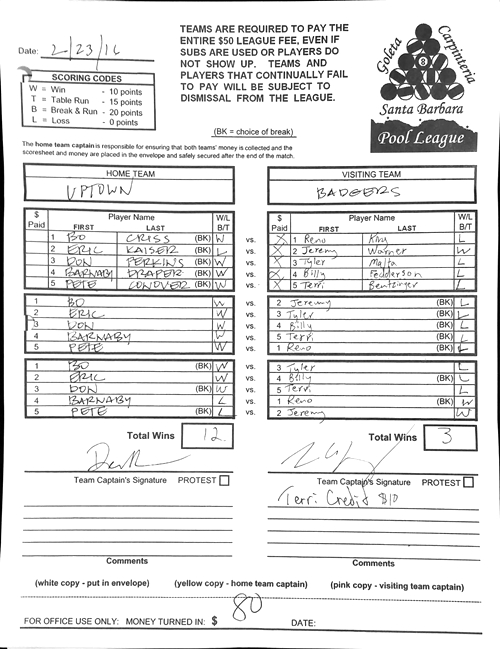 TEAMS ARE REQUIRED TO PAY THE
ENTIRE $50 LEAGUE FEE, EVEN IF
SUBS ARE USED OR PLAYERS DO
NOT SHOW UP. TEAMS AND
PLAYERS THAT CONTINUALLY FAIL
TO PAY WILL BE SUBJECT TO
DISMISSAL FROM THE LEAGUE.
Date: 2/23/16
SCORING CODES
W = Win - 10 points
T = Table Run - 15 points
B = Break & Run - 20 points
L = Loss - 0 points
Goleta
Carpinteria
8
Santa Barbara
Pool League
(BK = choice of break)
The home team captain is responsible for ensuring that both teams' money is collected and the
scoresheet and money are placed in the envelope and safely secured after the end of the match.
HOME TEAM VISITING TEAM
UPTOWN BADGERS
$ Paid Player Name FIRST LAST W/L B/T $ Paid Player Name FIRST LAST W/L B/T
1 BO CRISS (BK) W vs. X 1 Reno King L
2 ERIC KAISER (BK) L vs. X 2 Jeremy Warner W
3 DON PERKINS (BK) W vs. X 3 Tyler L
4 BARNABY DRAPER (BK) W vs. X 4 Billy L
5 PETE CONOVER (BK) W vs. X 5 Terri L
1 BO W vs. 2 Jeremy (BK) L
2 ERIC W vs. 3 Tyler (BK) L
3 DON W vs. 4 Billy (BK) L
4 BARNABY W vs. 5 Terri (BK) L
5 PETE W vs. 1 Reno (BK) L
1 BO (BK) W vs. 3 Tyler L
2 ERIC W vs. 4 Billy (BK) L
3 DON (BK) W vs. 5 Terri L
4 BARNABY L vs. 1 Reno (BK) W
5 PETE (BK) L vs. 2 Jeremy W
Total Wins 12 Total Wins 3
Team Captain's Signature PROTEST Team Captain's Signature PROTEST
Terri Credit $10
Comments Comments
(white copy - put in envelope) (yellow copy - home team captain) (pink copy - visiting team captain)
FOR OFFICE USE ONLY: MONEY TURNED IN: $ 80 DATE: